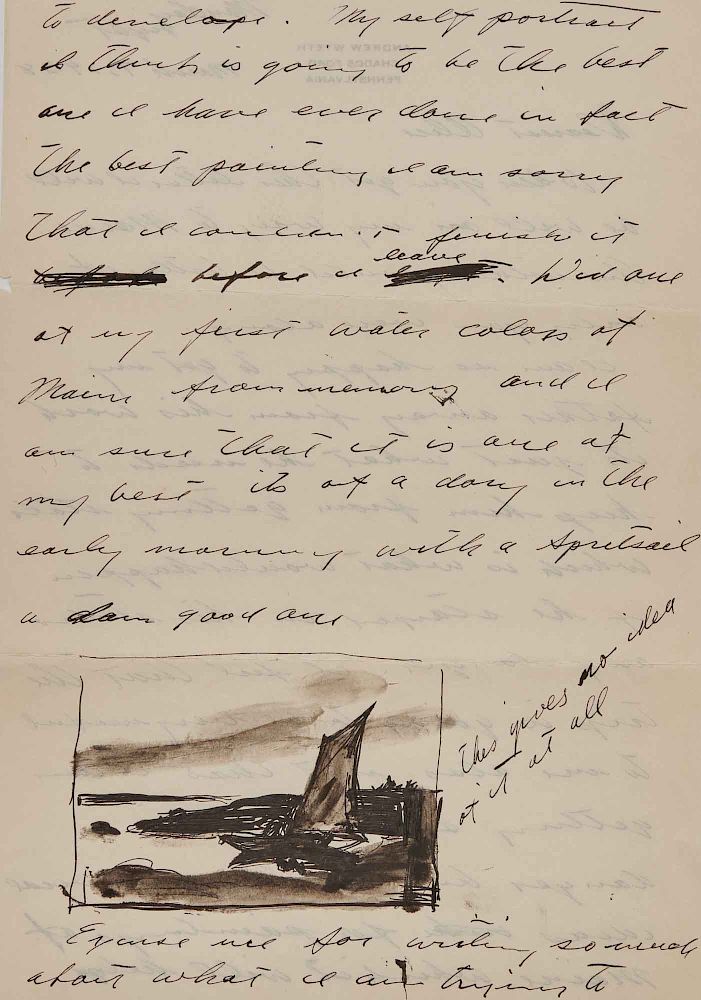 to develope. My self portrait
I think is going to be the best
one I have ever done in fact
the best painting I am sorry
that I couldn't finish it
before I leave. Did one
of my first water colors of
Maine from memory and I
am sure that it is one of
my best its of a dory in the
early morning with a Spritsail
a dam good one
This gives no idea
of it at all
Excuse me for writing so much
about what I am trying to
ANDREW WYETH
CHADDS FORD
PENNSYLVANIA